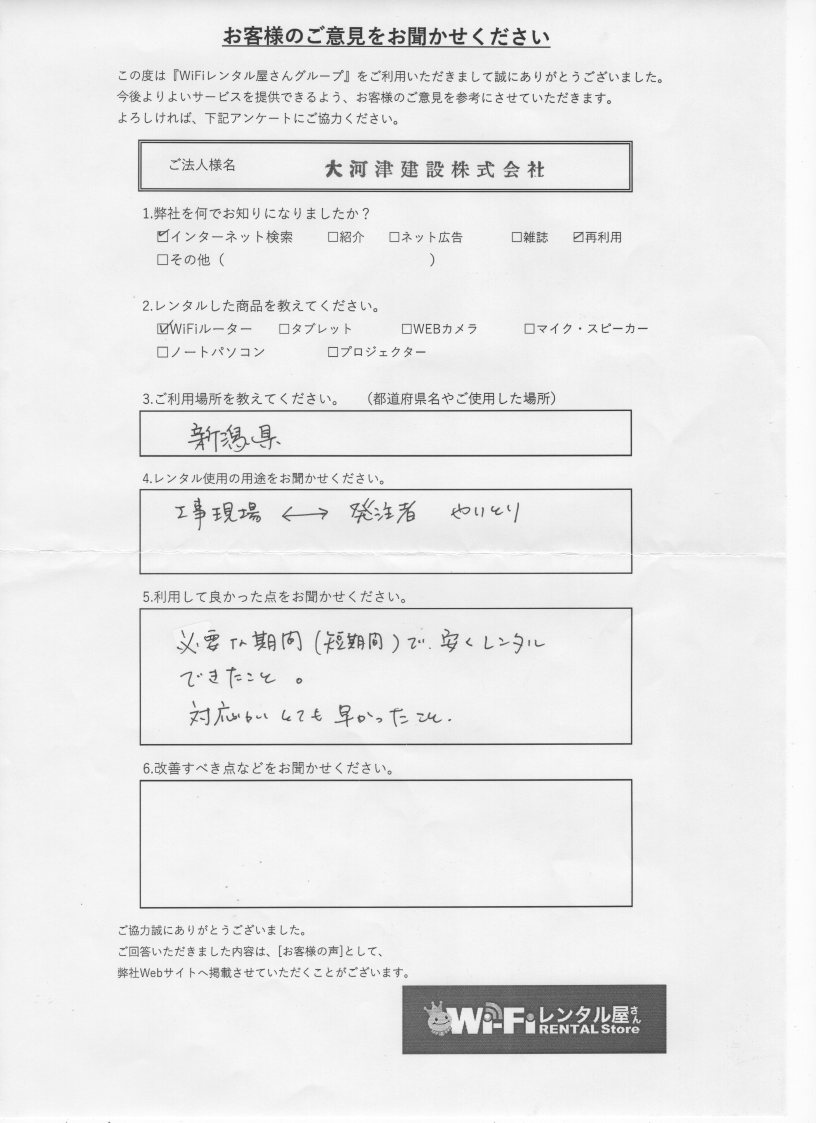 お客様のご意見をお聞かせください
この度は『WiFiレンタル屋さんグループ』をご利用いただきまして誠にありがとうございました。
今後よりよいサービスを提供できるよう、お客様のご意見を参考にさせていただきます。
よろしければ、下記アンケートにご協力ください。
ご法人様名 大河津建設株式会社
1.弊社を何でお知りになりましたか？
☑インターネット検索 □紹介 □ネット広告 □雑誌 ☑再利用
□その他（ ）
2.レンタルした商品を教えてください。
☑WiFiルーター □タブレット □WEBカメラ □マイク・スピーカー
□ノートパソコン □プロジェクター
3.ご利用場所を教えてください。 （都道府県名やご使用した場所）
新潟県
4.レンタル使用の用途をお聞かせください。
工事現場 ←→ 発注者 やりとり
5.利用して良かった点をお聞かせください。
必要な期間(短期間)で、安くレンタル
できたこと。
対応がとても早かったこと.
6.改善すべき点などをお聞かせください。
ご協力誠にありがとうございました。
ご回答いただきました内容は、[お客様の声]として、
弊社Webサイトへ掲載させていただくことがございます。
Wi-Fiレンタル屋さん
RENTAL Store